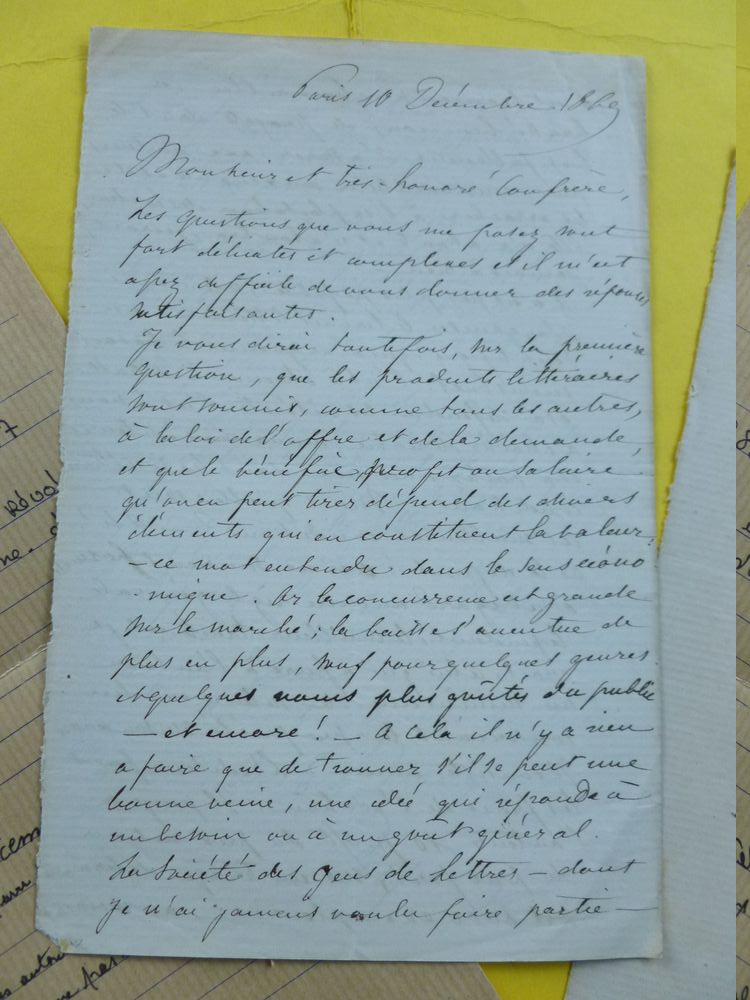 Paris 10 Décembre 1869
Monsieur et très-honoré Confrère,
Les questions que vous me posez sont
fort délicates et complexes et il m'est
assez difficile de vous donner des réponses
satisfaisantes.
Je vous dirai toutefois, sur la première
question, que les produits littéraires
sont soumis, comme tous les autres,
à la loi de l'offre et de la demande,
et que le bénéfice, profit ou salaire
qu'on en peut tirer dépend des divers
éléments qui en constituent la valeur,
— ce mot entendu dans le sens écono
-mique. Or la concurrence est grande
sur le marché ; la baisse s'accentue de
plus en plus, sauf pour quelques genres
et quelques noms plus goûtés du public
— et encore ! — A cela il n'y a rien
à faire que de trouver s'il se peut une
bonne veine, une idée qui réponde à
un besoin ou à un goût général.
La Société des Gens de Lettres — dont
je n'ai jamais voulu faire partie —
7